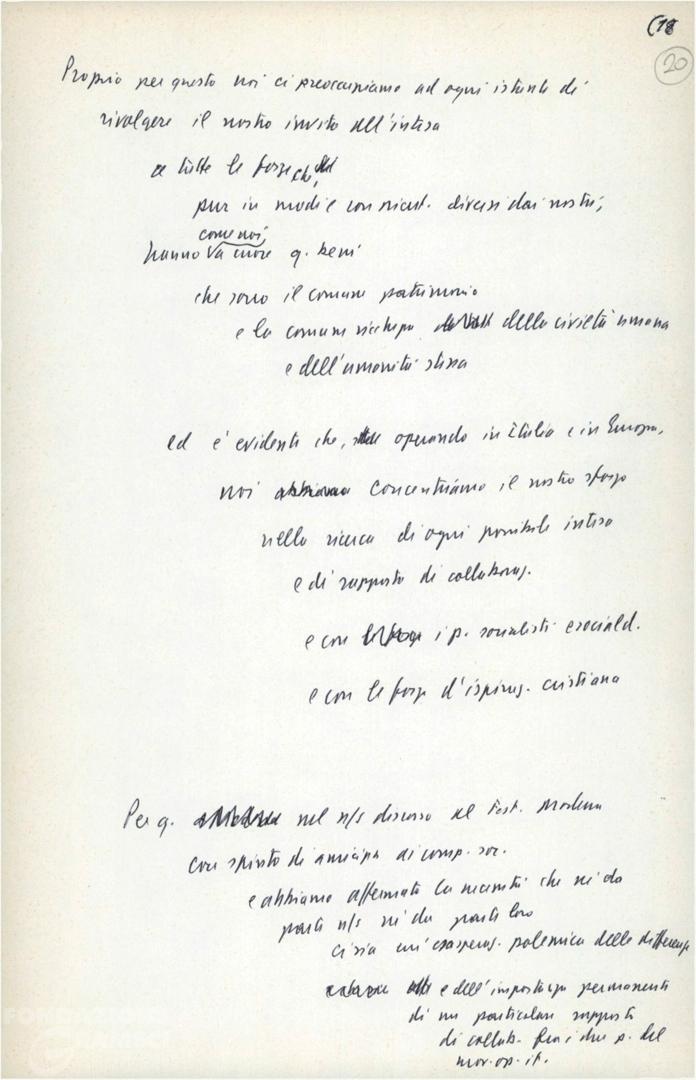 (18
20
Proprio per questo noi ci preoccupiamo ad ogni istante di
rivolgere il nostro invito all'intesa
a tutte le forze che,
pur in modi e con diversi dai nostri,
come noi,
hanno a cuore q. beni
che sono il comune patrimonio
e la comune della civiltà umana
e dell'umanità stessa
ed è evidente che, operando in Italia e in Europa,
noi concentriamo il nostro sforzo
nella ricerca di ogni possibile intesa
e di rapporto di collaboraz.
e con i p. socialisti e sociald.
e con le forze d'ispiraz. cristiana
Per q. nel n/s discorso al Fest. Modena
con spirito di amicizia ai comp. soc.
e abbiamo affermato la necessità che né da
parte n/s né da parte loro
ci sia un'esasperaz. polemica delle differenze
e dell'importanza permanente
di un particolare rapporto
di collab. fra i due p. del
mov. op. it.